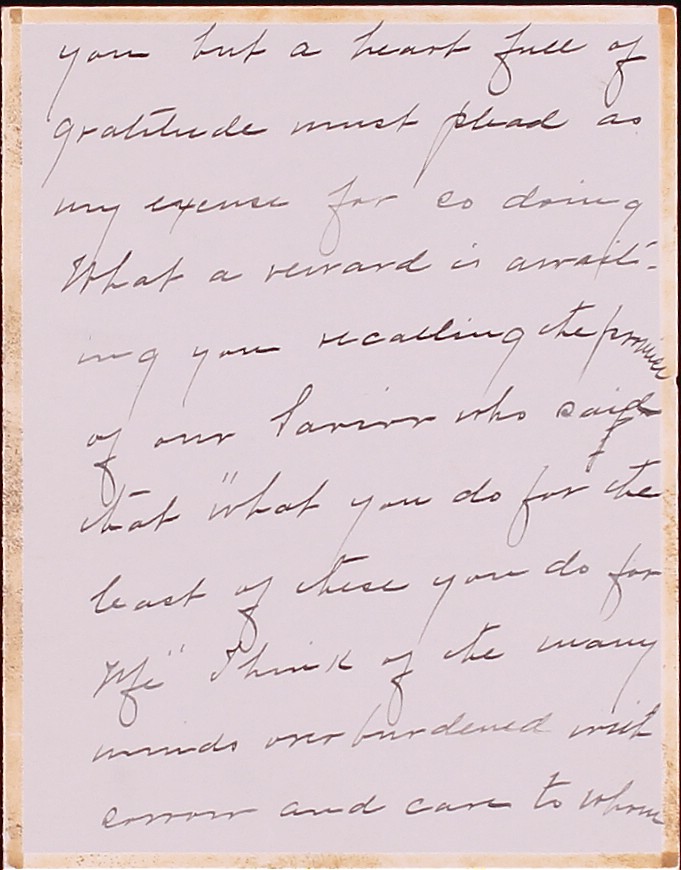 you but a heart full of
gratitude must plead as
my excuse for so doing
What a reward is await-
ing you recalling the promise
of our Savior who said
that "what you do for the
least of these you do for
Me" Think of the many
minds over burdened with
sorrow and care to whom